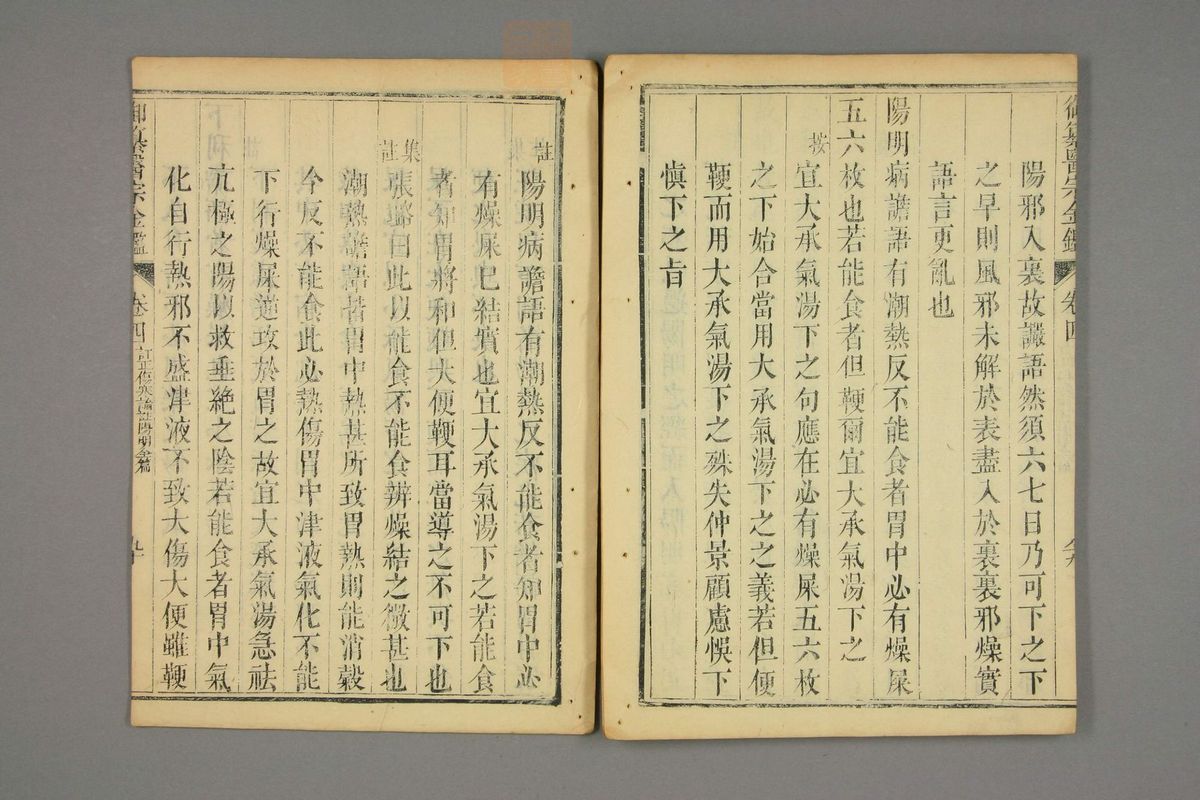 陽邪入裏故讝語然須六七日乃可下之下
之早則風邪未解於表盡入於裏裏邪燥實
語言更亂也
陽明病譫語有潮熱反不能食者胃中必有燥屎
五六枚也若能食者但鞕爾宜大承氣湯下之
按
宜大承氣湯下之句應在必有燥屎五六枚
之下始合當用大承氣湯下之之義若但便
鞕而用大承氣湯下之殊失仲景顧慮悞下
慎下之旨
註
陽明病譫語有潮熱反不能食者知胃中必
有燥屎已結實也宜大承氣湯下之若能食
者知胃將和但大便鞕耳當導之不可下也
集註
張璐曰此以能食不能食辨燥結之微甚也
潮熱譫語者胃中熱甚所致胃熱則能消穀
今反不能食此必熱傷胃中津液氣化不能
下行燥屎逆攻於胃之故宜大承氣湯急祛
亢極之陽以救垂絕之陰若能食者胃中氣
化自行熱邪不盛津液不致大傷大便雖鞕
御纂醫宗金鑑 卷四 訂正傷寒論註陽明全篇